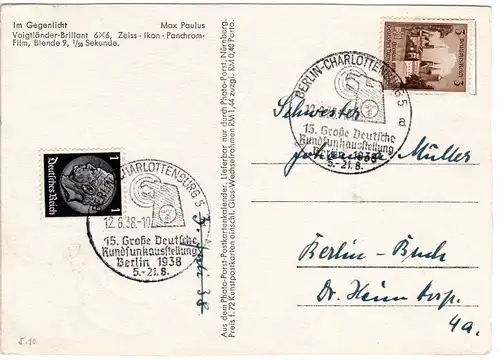 Im Gegenlicht
Max Paulus
Voigtländer-Brillant 6X6, Zeiss-Ikon-Panchrom-
Film, Blende 9, 1/50 Sekunde.
Aus dem Photo-Porst-Postkartenkalender. Lieferbar nur durch Photo-Porst, Nürnberg.
Preis f. 72 Kunstpostkarten einschl. Glas-Wechselrahmen RM 1,44 zuzgl. RM 0,40 Porto.
1
1
Deutsches Reich
BERLIN-CHARLOTTENBURG 5
12.8.38.-10
15. Große Deutsche
Rundfunkausstellung
Berlin 1938
5.-21.8.
BERLIN-CHARLOTTENBURG 5
a
12.8.38
15. Große Deutsche
Rundfunkausstellung
Berlin 1938
5.-21.8.
3
3
Schwester
Müller
Berlin-Buch
Dr.
4a.
38
5.10